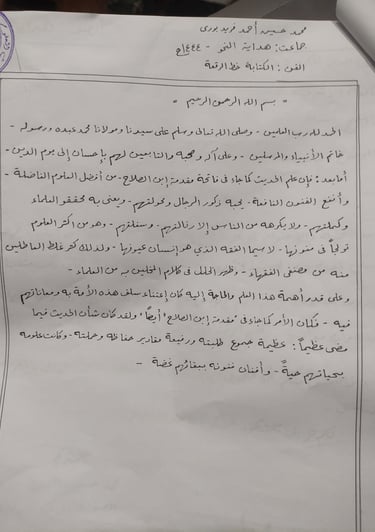 محمد حسين أحمد فريد بوري
جماعت : هداية النحو - ١٤٤٤ج
الفن : الكتابة خط الرقعة
" بسم الله الرحمن الرحيم "
الحمد لله رب العالمين - وصلى الله تعالى وسلم على سيدنا ومولانا محمد عبده ورسوله -
خاتم الأنبياء والمرسلين - وعلى آله وصحبه والتابعين لهم بإحسان إلى يوم الدين -
أما بعد : فإن علم الحديث كما جاء في فاتحة مقدمة إبن الصلاح - من أفضل العلوم الفاضلة -
وأنفع الفنون النافعة - يحبه ذكور الرجال وفحولتهم - ويعنى به محققو العلماء
وكملتهم - ولا يكرهه من الناس إلا رذالتهم - وسفلتهم - وهو من اكثر العلوم
تولجاً في فنونها - لا سيما الفقه الذي هو إنسان عيونها - ولذلك كثر غلط العاطلين
منه من مصنفي الفقهاء - وظهر الخلل في كلام المخلين به من العلماء -
وعلى قدر أهمة هذا العلم والحاجة إليه كان إعتناء سلف هذه الأمة به ومعاناتهم
فيه - فكان الأمر كما جاء في "مقدمة إبن الصلاح" أيضا" ولقد كان شأن الحديث فيما
مضى عظيماً : عظيمة جموع طلبته ورفيعة مقادير حفاظه وحملته - وكانت علومه
بحياتهم حيةً - وأفنان فنونه ببقائهم غضة -